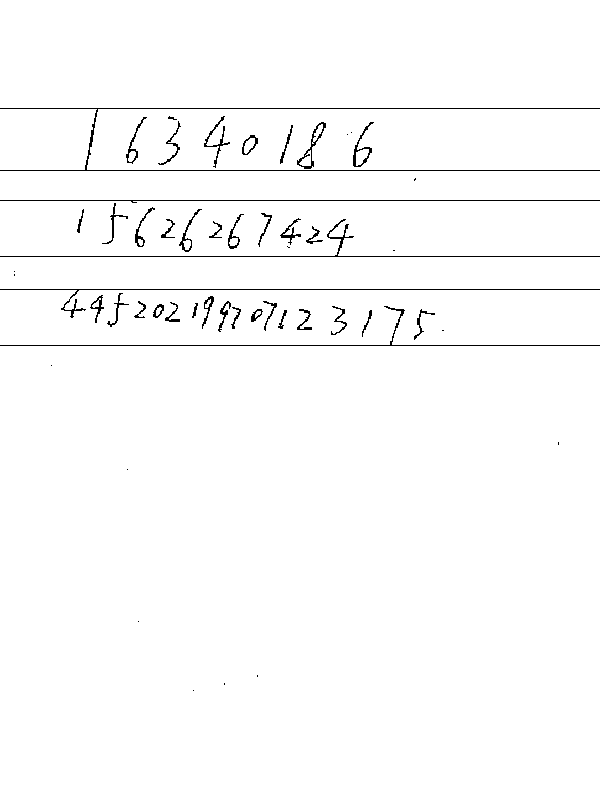 16340186
15626267424
445202199707123175